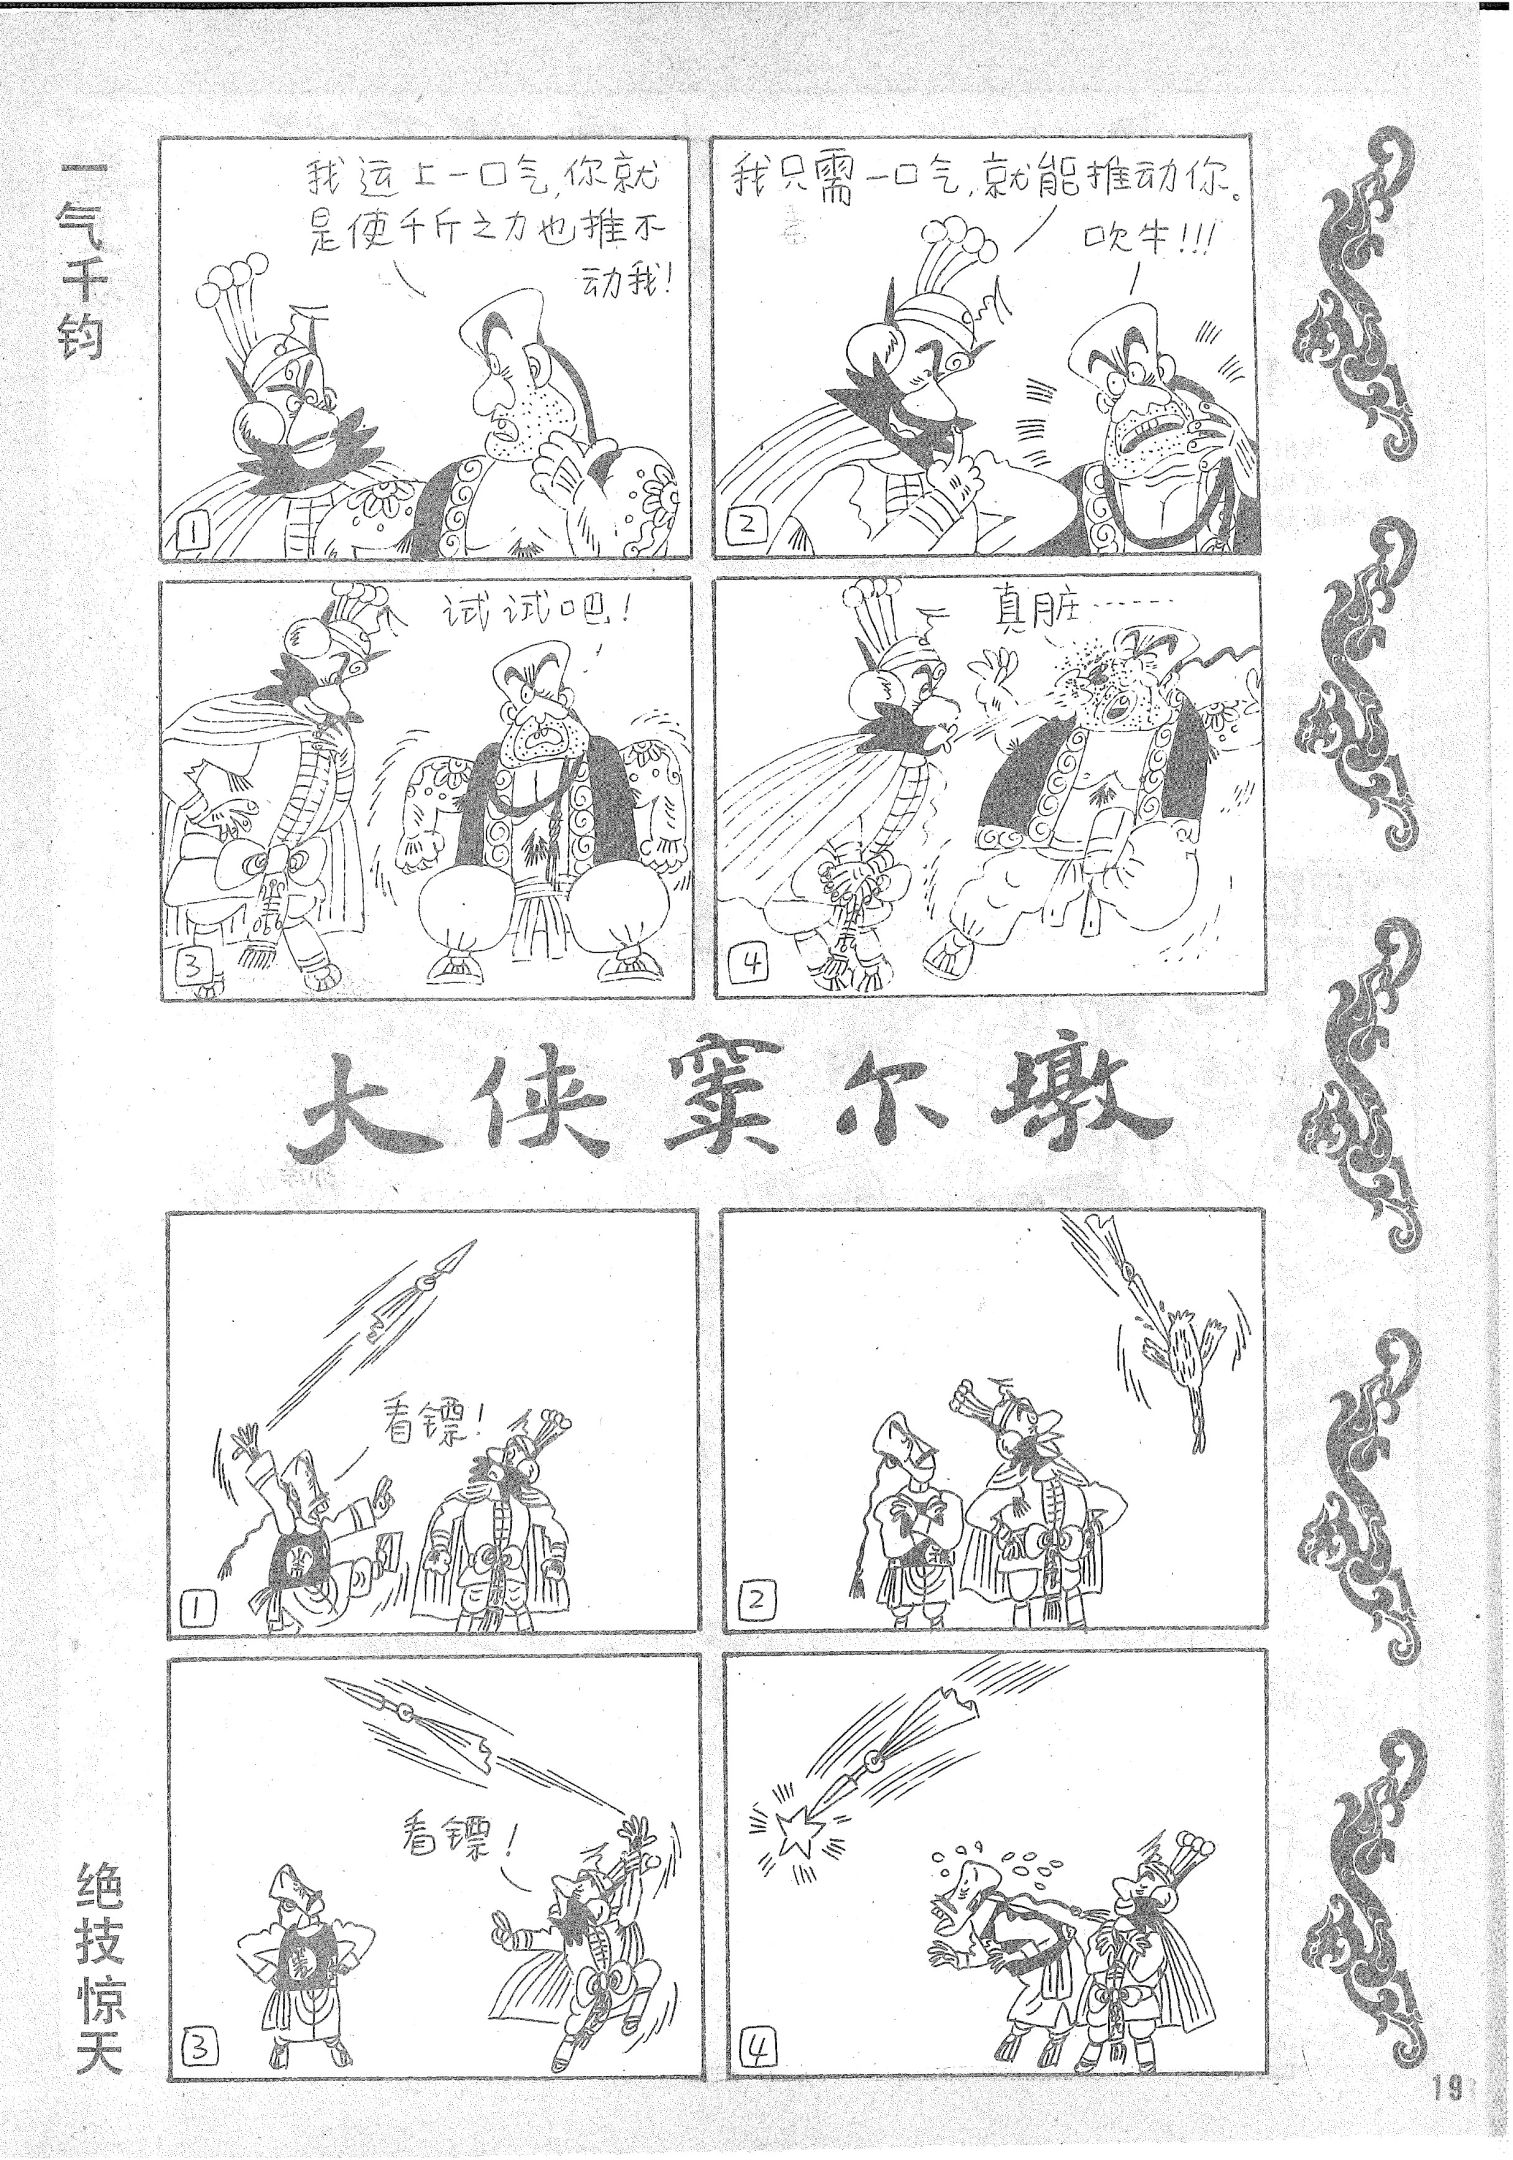 一气千钧
我运上一口气,你就
是使千斤之力也推不
动我!
1
我只需一口气,就能推动你。
吹牛!!!
2
试试吧!
3
真脏……
4
大侠窦尔墩
绝技惊天
看镖!
1
2
看镖!
3
4
19